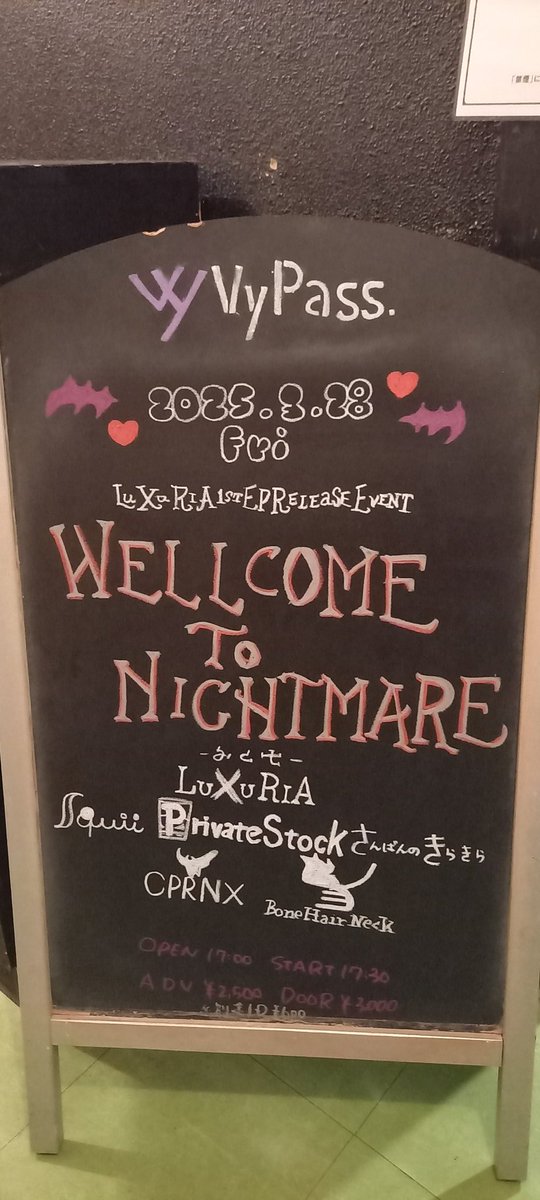 VyPass.
2025.3.28
Fri
LuXuRiA 1st EP Release Event
WELLCOME
To
NIGHTMARE
LuXuRiA
Squii PrivateStock さんばんのきらきら
CPRNX BoneHairNeck
OPEN 17:00 START 17:30
ADV ¥2,500 DOOR ¥3,000
※別途1D¥600